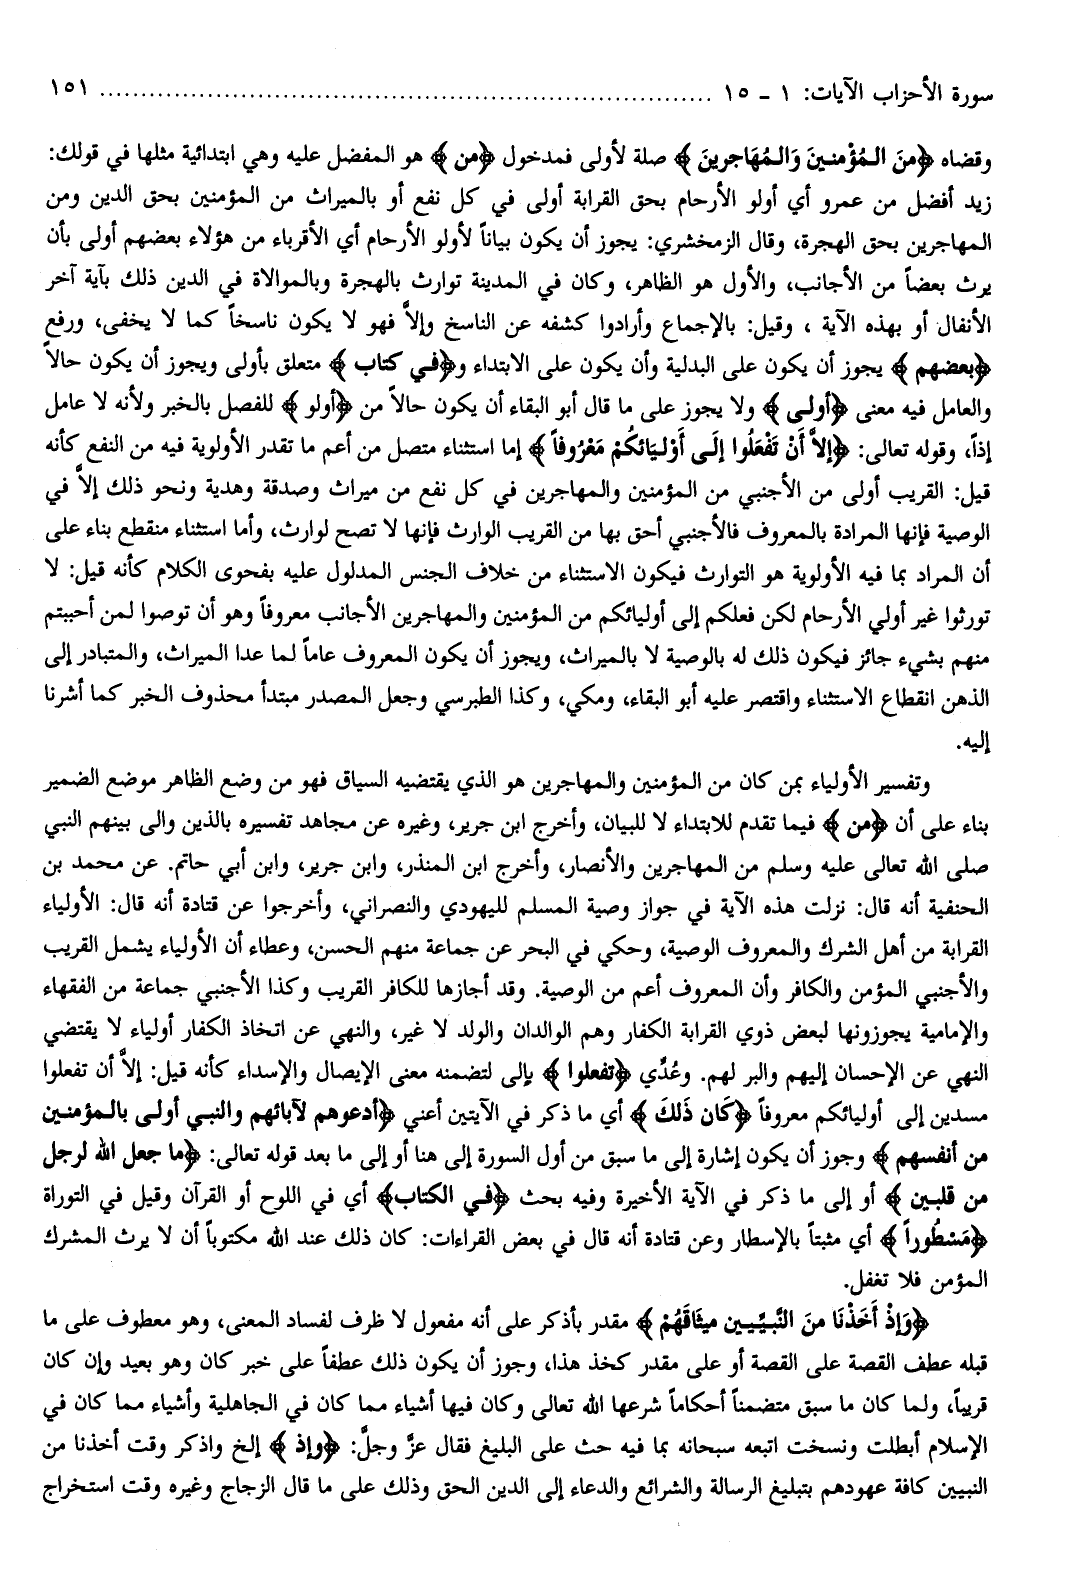 سورة الأحزاب الآيات: ١ - ١٥ ........................................................................... ١٥١
وقضاه ﴿منَ المُؤْمنينَ وَالمُهَاجرينَ﴾ صلة لأولى فمدخول ﴿من﴾ هو المفضل عليه وهي ابتدائية مثلها في قولك:
زيد أفضل من عمرو أي أولو الأرحام بحق القرابة أولى في كل نفع أو بالميراث من المؤمنين بحق الدين ومن
المهاجرين بحق الهجرة، وقال الزمخشري: يجوز أن يكون بياناً لأولو الأرحام أي الأقرباء من هؤلاء بعضهم أولى بأن
يرث بعضاً من الأجانب، والأول هو الظاهر، وكان في المدينة توارث بالهجرة وبالموالاة في الدين ذلك بآية آخر
الأنفال أو بهذه الآية ، وقيل: بالإجماع وأرادوا كشفه عن الناسخ وإلاَّ فهو لا يكون ناسخاً كما لا يخفى، ورفع
﴿بعضهم﴾ يجوز أن يكون على البدلية وأن يكون على الابتداء و﴿في كتاب﴾ متعلق بأولى ويجوز أن يكون حالاً
والعامل فيه معنى ﴿أولى﴾ ولا يجوز على ما قال أبو البقاء أن يكون حالاً من ﴿أولو﴾ للفصل بالخبر ولأنه لا عامل
إذاً، وقوله تعالى: ﴿إلاَّ أَنْ تَفْعَلُوا إلَى أَوْليَائكُمْ مَعْرُوفاً﴾ إما استثناء متصل من أعم ما تقدر الأولوية فيه من النفع كأنه
قيل: القريب أولى من الأجنبي من المؤمنين والمهاجرين في كل نفع من ميراث وصدقة وهدية ونحو ذلك إلاَّ في
الوصية فإنها المرادة بالمعروف فالأجنبي أحق بها من القريب الوارث فإنها لا تصح لوارث، وأما استثناء منقطع بناء على
أن المراد بما فيه الأولوية هو التوارث فيكون الاستثناء من خلاف الجنس المدلول عليه بفحوى الكلام كأنه قيل: لا
تورثوا غير أولي الأرحام لكن فعلكم إلى أوليائكم من المؤمنين والمهاجرين الأجانب معروفاً وهو أن توصوا لمن أحببتم
منهم بشيء جائز فيكون ذلك له بالوصية لا بالميراث، ويجوز أن يكون المعروف عاماً لما عدا الميراث، والمتبادر إلى
الذهن انقطاع الاستثناء واقتصر عليه أبو البقاء، ومكي، وكذا الطبرسي وجعل المصدر مبتدأ محذوف الخبر كما أشرنا
إليه.
وتفسير الأولياء بمن كان من المؤمنين والمهاجرين هو الذي يقتضيه السياق فهو من وضع الظاهر موضع الضمير
بناء على أن ﴿من﴾ فيما تقدم للابتداء لا للبيان، وأخرج ابن جرير، وغيره عن مجاهد تفسيره بالذين والى بينهم النبي
صلى الله تعالى عليه وسلم من المهاجرين والأنصار، وأخرج ابن المنذر، وابن جرير، وابن أبي حاتم. عن محمد بن
الحنفية أنه قال: نزلت هذه الآية في جواز وصية المسلم لليهودي والنصراني، وأخرجوا عن قتادة أنه قال: الأولياء
القرابة من أهل الشرك والمعروف الوصية، وحكي في البحر عن جماعة منهم الحسن، وعطاء أن الأولياء يشمل القريب
والأجنبي المؤمن والكافر وأن المعروف أعم من الوصية. وقد أجازها للكافر القريب وكذا الأجنبي جماعة من الفقهاء
والإمامية يجوزونها لبعض ذوي القرابة الكفار وهم الوالدان والولد لا غير، والنهي عن اتخاذ الكفار أولياء لا يقتضي
النهي عن الإحسان إليهم والبر لهم. وعُدِّي ﴿تفعلوا﴾ بإلى لتضمنه معنى الإيصال والإسداء كأنه قيل: إلاَّ أن تفعلوا
مسدين إلى أوليائكم معروفاً ﴿كَان ذَلكَ﴾ أي ما ذكر في الآيتين أعني ﴿أدعوهم لآبائهم والنبي أولى بالمؤمنين
من أنفسهم﴾ وجوز أن يكون إشارة إلى ما سبق من أول السورة إلى هنا أو إلى ما بعد قوله تعالى: ﴿ما جعل الله لرجل
من قلبين﴾ أو إلى ما ذكر في الآية الأخيرة وفيه بحث ﴿في الكتاب﴾ أي في اللوح أو القرآن وقيل في التوراة
﴿مَسْطُوراً﴾ أي مثبتاً بالإسطار وعن قتادة أنه قال في بعض القراءات: كان ذلك عند الله مكتوباً أن لا يرث المشرك
المؤمن فلا تغفل.
﴿وَإذْ أَخَذْنَا منَ النَّبيِّين ميثَاقَهُمْ﴾ مقدر بأذكر على أنه مفعول لا ظرف لفساد المعنى، وهو معطوف على ما
قبله عطف القصة على القصة أو على مقدر كخذ هذا، وجوز أن يكون ذلك عطفاً على خبر كان وهو بعيد وإن كان
قريباً، ولما كان ما سبق متضمناً أحكاماً شرعها الله تعالى وكان فيها أشياء مما كان في الجاهلية وأشياء مما كان في
الإسلام أبطلت ونسخت اتبعه سبحانه بما فيه حث على البليغ فقال عزَّ وجلَّ: ﴿وإذ﴾ إلخ واذكر وقت أخذنا من
النبيين كافة عهودهم بتبليغ الرسالة والشرائع والدعاء إلى الدين الحق وذلك على ما قال الزجاج وغيره وقت استخراج